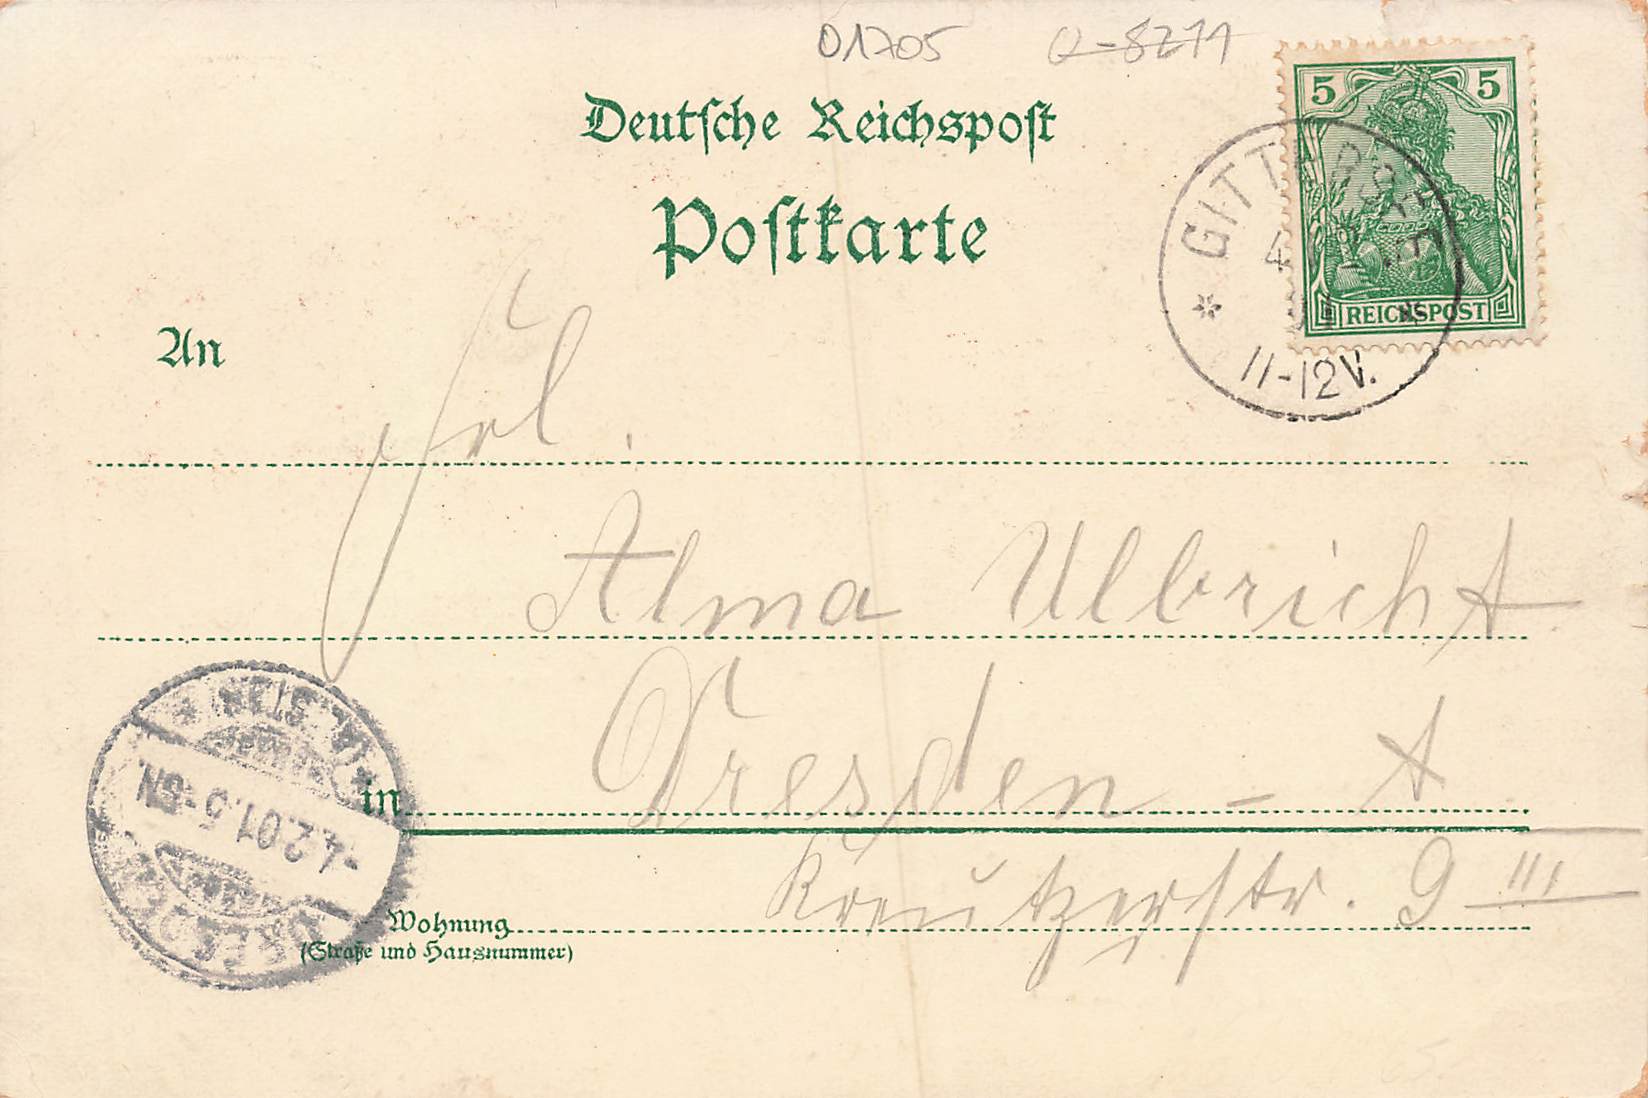 01705 Q-8211
Deutsche Reichspost
Postkarte
5 5
REICHSPOST
GITTERSEE
11-12V.
An
Frl.
Alma Ulbricht
in Dresden - A
Kreutzerstr. 9 III
Wohnung
(Straße und Hausnummer)
DRESDEN
-4.2.01.5-6N.
ALTST.